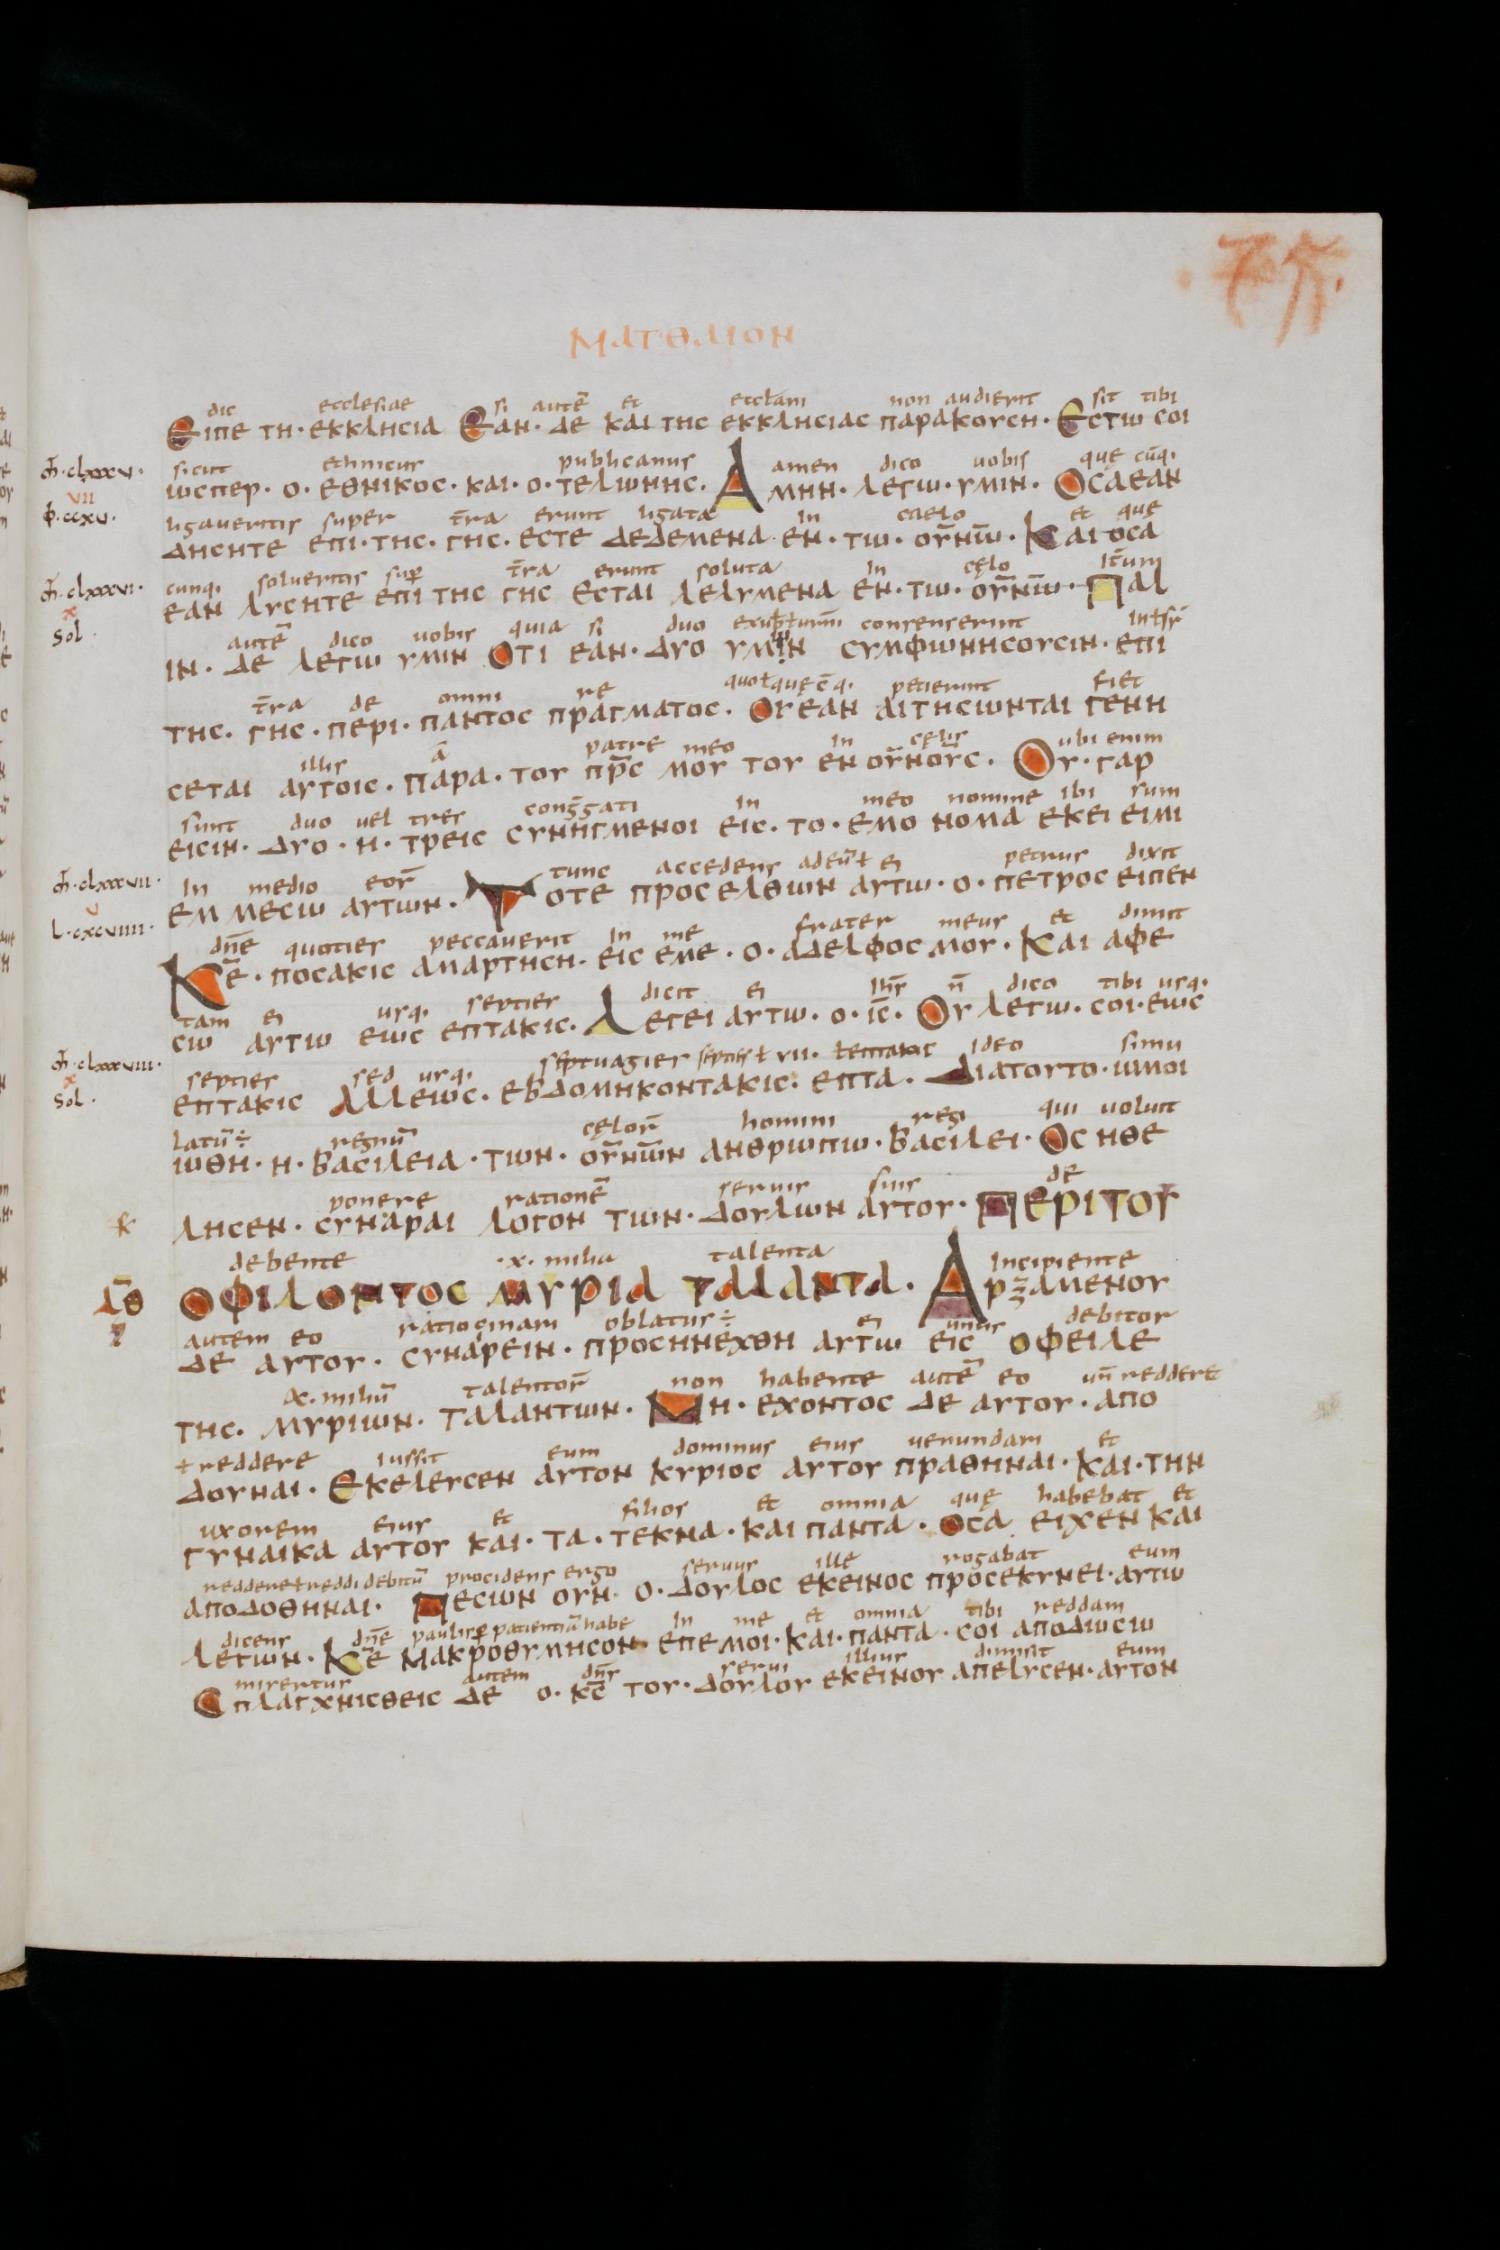 ΜΑΤΘΑΙΟΝ
dic ecclesiae si autē et eccłam non audierit sit tibi
ΕΙΠΕ ΤΗ · ΕΚΚΛΗϹΙΑ ΕΑΝ · ΔΕ ΚΑΙ ΤΗϹ ΕΚΚΛΗϹΙΑϹ ΠΑΡΑΚΟΥϹΗ · ΕϹΤΩ ϹΟΙ
sicut ethnicus publicanus amen dico uobis quę cūq·
ΩϹΠΕΡ · Ο · ΕΘΝΙΚΟϹ · ΚΑΙ · Ο · ΤΕΛΩΝΗϹ · ΑΜΗΝ · ΛΕΓΩ · ΥΜΙΝ · ΟϹΑΕΑΝ
ligaueritis super t̄ra erunt ligata in caelo et que
ΔΗϹΗΤΕ ΕΠΙ · ΤΗϹ · ΓΗϹ · ΕϹΤΕ ΔΕΔΕΜΕΝΑ ΕΝ · ΤΩ · ΟΥ̅Ν̅Ω̅ · ΚΑΙ ΟϹΑ
cunq· solueritis sup t̄ra erunt soluta in cęlo It̄um
ΕΑΝ ΛΥϹΗΤΕ ΕΠΙ ΤΗϹ ΓΗϹ ΕϹΤΑΙ ΛΕΛΥΜΕΝΑ ΕΝ · ΤΩ · ΟΥ̅Ν̅Ω̅ · ΠΑΛ
autē dico uobis quia si duo consenserint
ΙΝ · ΔΕ ΛΕΓΩ ΥΜΙΝ ΟΤΙ ΕΑΝ · ΔΥΟ ΥΜΩΝ ϹΥΜΦΩΝΗϹΟΥϹΙΝ · ΕΠΙ
t̄ra de omni re petierint fiet
ΤΗϹ · ΓΗϹ · ΠΕΡΙ · ΠΑΝΤΟϹ ΠΡΑΓΜΑΤΟϹ · ΟΥΕΑΝ ΑΙΤΗϹΩΝΤΑΙ ΓΕΝΗ
illis ā patre meo in cęlis ubi enim
ϹΕΤΑΙ ΑΥΤΟΙϹ · ΠΑΡΑ · ΤΟΥ Π̅Ρ̅Ϲ ΜΟΥ ΤΟΥ ΕΝ ΟΥ̅ΝΟΥ̅Ϲ · ΟΥ · ΓΑΡ
sunt duo uel tres cong̅gati in meo nomine ibi sum
ΕΙϹΙΝ · ΔΥΟ · Η · ΤΡΕΙϹ ϹΥΝΗΓΜΕΝΟΙ ΕΙϹ · ΤΟ · ΕΜΟ ΝΟΜΑ ΕΚΕΙ ΕΙΜΙ
in medio eor̄ tunc accedens adeū ł ei petrus dixit
ΕΜ ΜΕϹΩ ΑΥΤΩΝ · ΤΟΤΕ ΠΡΟϹΕΛΘΩΝ ΑΥΤΩ · Ο · ΠΕΤΡΟϹ ΕΙΠΕΝ
dn̄e quoties peccauerit in me frater meus et dimit
Κ̅Ε · ΠΟϹΑΚΙϹ ΑΜΑΡΤΗϹΗ · ΕΙϹ ΕΜΕ · Ο · ΑΔΕΛΦΟϹ ΜΟΥ · ΚΑΙ ΑΦΕ
tam ei usq· septies dicit ei ihs̄ n̄ dico tibi usq·
ϹΩ ΑΥΤΩ ΕΩϹ ΕΠΤΑΚΙϹ · ΛΕΓΕΙ ΑΥΤΩ · Ο · Ι̅Ϲ · ΟΥ ΛΕΓΩ · ϹΟΙ · ΕΩϹ
septies sed usq· septuagies septies ł vii · ideo simu
ΕΠΤΑΚΙϹ ΑΛΛΕΩϹ · ΕΒΔΟΜΗΚΟΝΤΑΚΙϹ · ΕΠΤΑ · ΔΙΑΤΟΥΤΟ · ΩΜΟΙ
latū ÷ regnū cęlor̄ homini regi qui uoluit
ΩΘΗ · Η · ΒΑϹΙΛΕΙΑ · ΤΩΝ · ΟΥ̅ΝΩ̅Ν ΑΝΘΡΩΠΩ · ΒΑϹΙΛΕΙ · ΟϹ ΗΘΕ
ponere rationē seruis suis de
ΛΗϹΕΝ · ϹΥΝΑΡΑΙ ΛΟΓΟΝ ΤΩΝ · ΔΟΥΛΩΝ ΑΥΤΟΥ · ΠΕΡΙ ΤΟΥ
debente · x · milia talenta Incipiente
ΟΦΙΛΟΝΤΟϹ ΜΥΡΙΑ ΤΑΛΑΝΤΑ · ΑΡΞΑΜΕΝΟΥ
autem eo ratiocinari oblatus ÷ ei unus debitor
ΔΕ ΑΥΤΟΥ · ϹΥΝΑΡΕΙΝ · ΠΡΟϹΗΝΕΧΘΗ ΑΥΤΩ ΕΙϹ ΟΦΕΙΛΕ
x · miliū talentor̄ non habente autē eo un̄ reddere
ΤΗϹ · ΜΥΡΙΩΝ · ΤΑΛΑΝΤΩΝ · ΜΗ · ΕΧΟΝΤΟϹ ΔΕ ΑΥΤΟΥ · ΑΠΟ
ł reddere iussit eum dominus eius uenundari et
ΔΟΥΝΑΙ · ΕΚΕΛΕΥϹΕΝ ΑΥΤΟΝ ΚΥΡΙΟϹ ΑΥΤΟΥ ΠΡΑΘΗΝΑΙ · ΚΑΙ · ΤΗΝ
uxorem eius et filios et omnia quę habebat et
ΓΥΝΑΙΚΑ ΑΥΤΟΥ ΚΑΙ · ΤΑ · ΤΕΚΝΑ · ΚΑΙ ΠΑΝΤΑ · ΟϹΑ ΕΙΧΕΝ ΚΑΙ
reddere ł reddi debitū procidens ergo seruus ille rogabat eum
ΑΠΟΔΟΘΗΝΑΙ · ΠΕϹΩΝ ΟΥΝ · Ο · ΔΟΥΛΟϹ ΕΚΕΙΝΟϹ ΠΡΟϹΕΚΥΝΕΙ · ΑΥΤΩ
dicens dn̄e patientiā habe in me et omnia tibi reddam
ΛΕΓΩΝ · Κ̅Ε ΜΑΚΡΟΘΥΜΗϹΟΝ ΕΠΕΜΟΙ · ΚΑΙ · ΠΑΝΤΑ · ϹΟΙ ΑΠΟΔΩϹΩ
misertus autem dn̄s serui illius dimisit eum
ϹΠΛΑΓΧΝΙϹΘΕΙϹ ΔΕ Ο · Κ̅Ϲ ΤΟΥ · ΔΟΥΛΟΥ ΕΚΕΙΝΟΥ ΑΠΕΛΥϹΕΝ · ΑΥΤΟΝ
· clxxxv ·
vii
· ccxv ·
· clxxxvi ·
x
sol ·
· clxxxvii ·
v
L · cxcviiii ·
· clxxxviii ·
x
sol ·